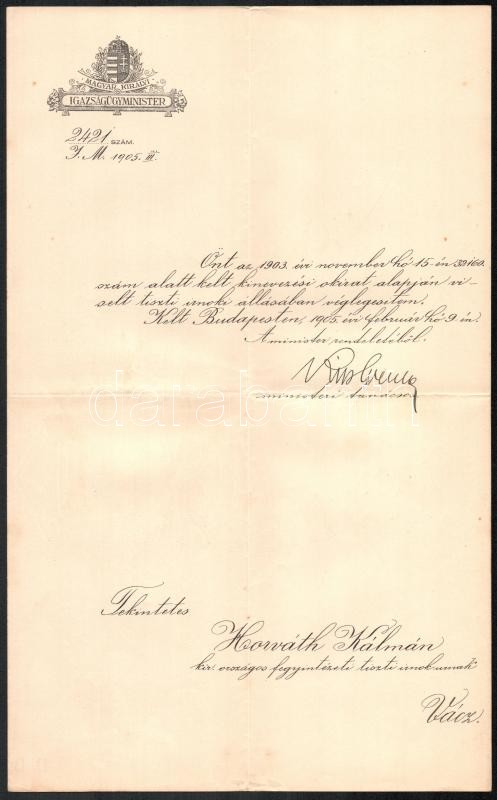 MAGYAR KIRÁLYI
IGAZSÁGÜGYMINISTER
2421 SZÁM.
I. M. 1905. III.
Önt az 1903. évi november hó 15-én 39160.
szám alatt kelt kinevezési okirat alapján vi-
selt tiszti irnoki állásában véglegesitem.
Kelt Budapesten, 1905. évi február hó 9-én.
A minister rendeletéből.
ministeri tanácsos
darabanth
Tekintetes
Horváth Kálmán
kir. országos fegyintézeti tiszti irnok urnak
Vácz.